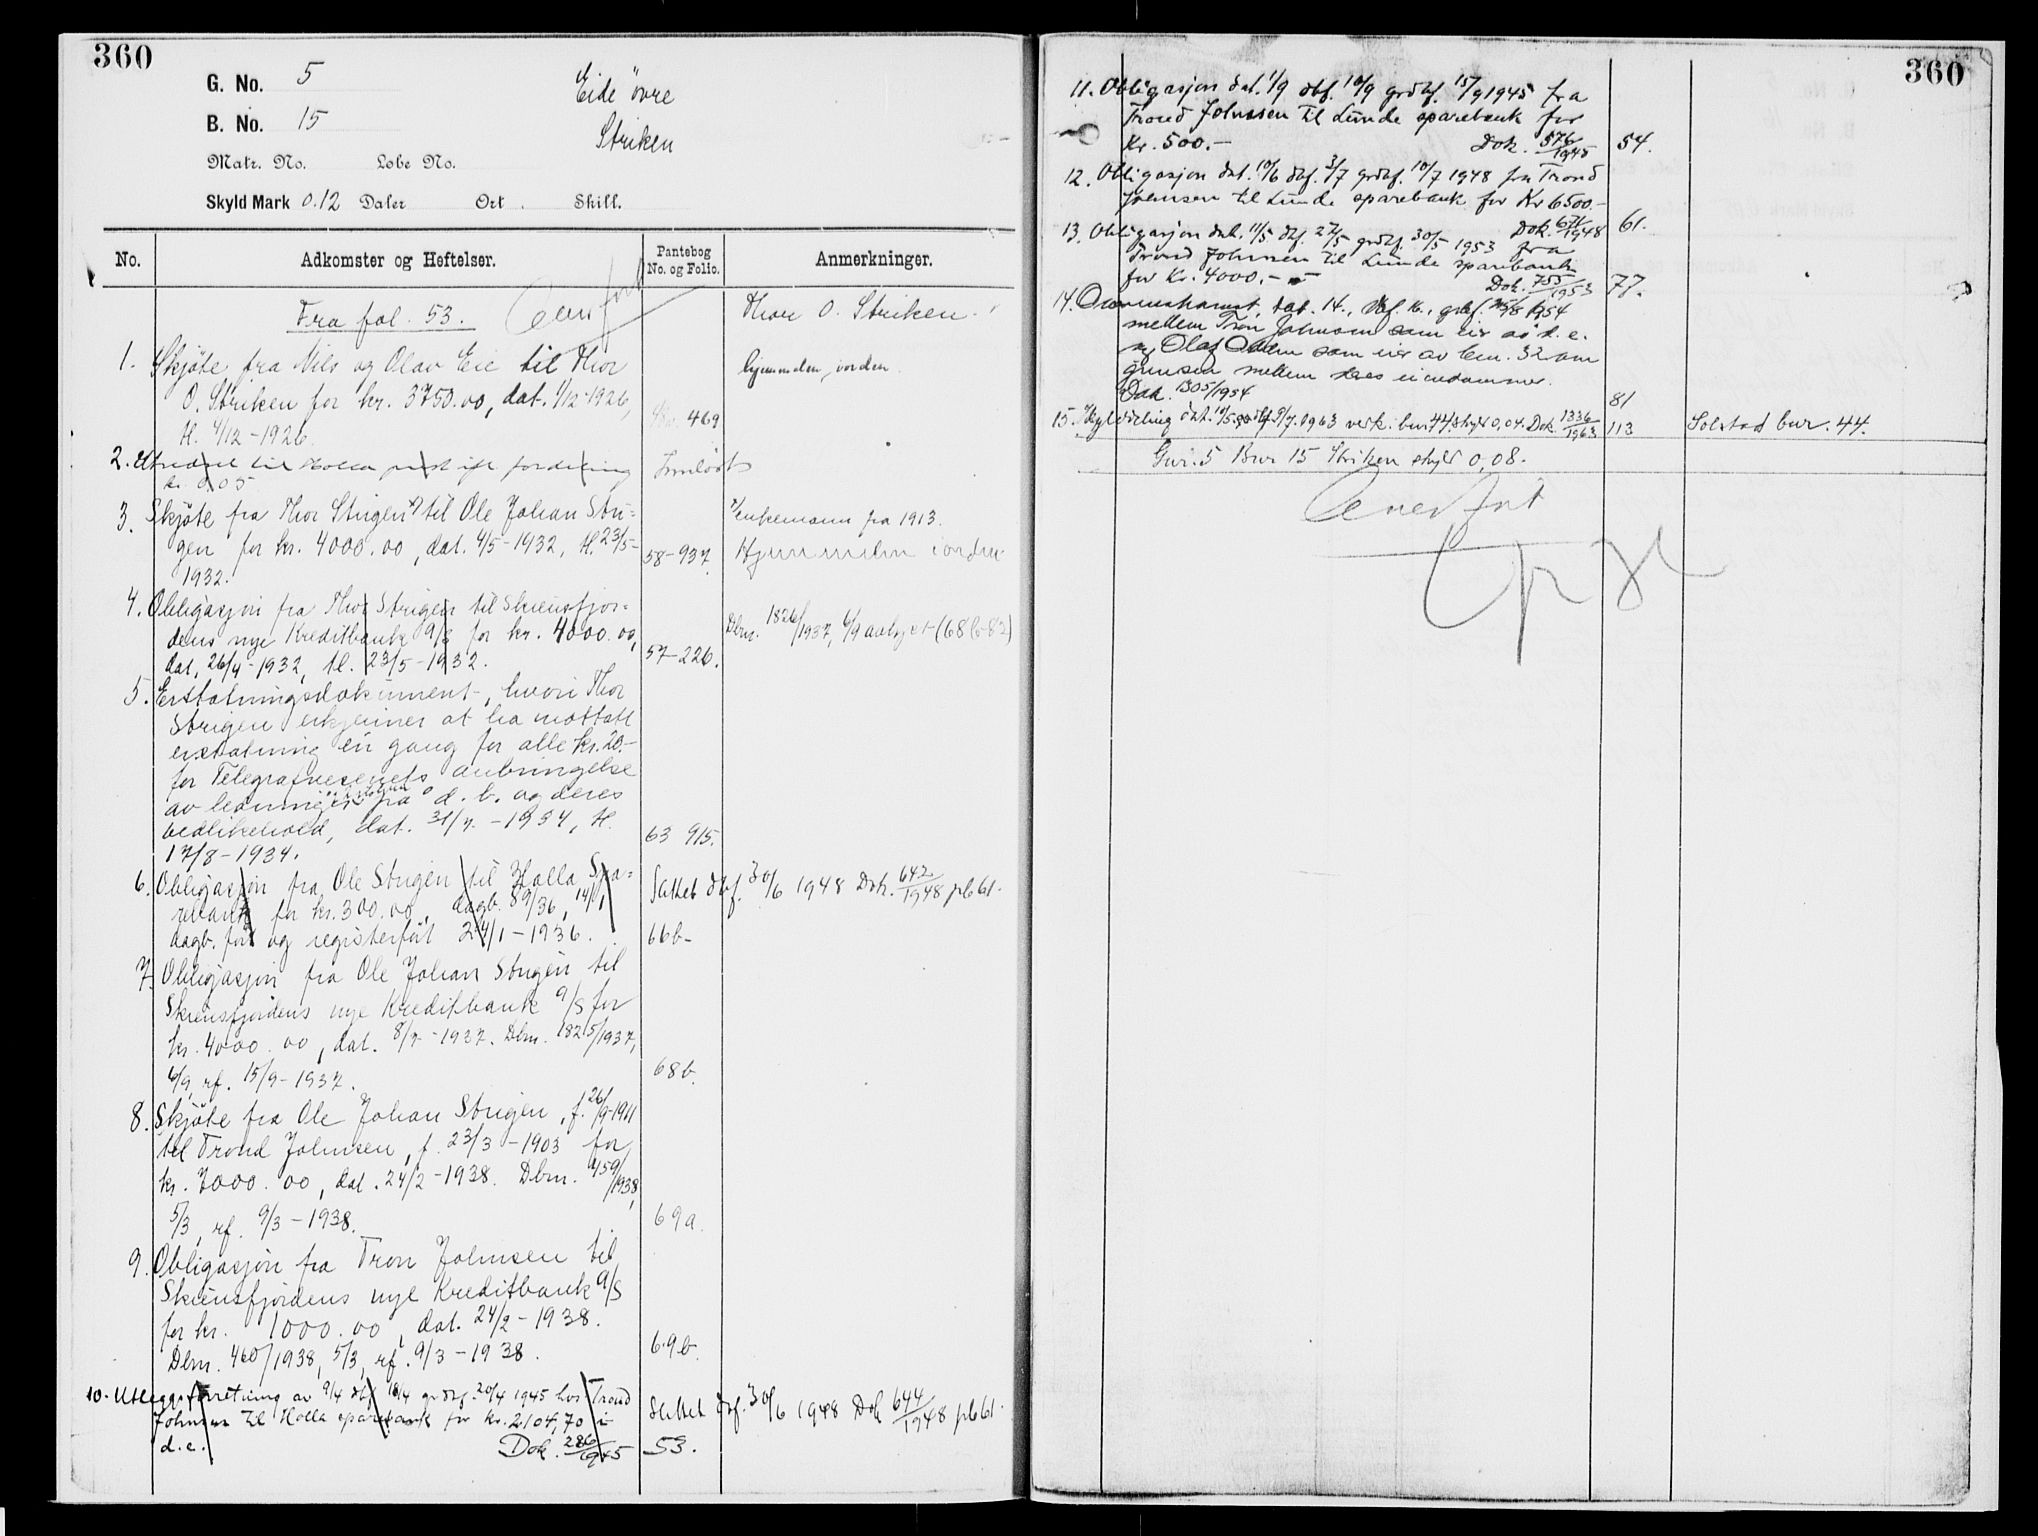 360
G. No. 5
Eide övre
B. No. 15
Striken
Matr. No. Løbe No.
Skyld Mark 0.12 Daler Ort Skill.
No.
Adkomster og Heftelser.
Pantebog No. og Folio.
Anmerkninger.
Fra fol. 53.
Thor O. Striken.
1. Skjöte fra Nils og Olav Eie til Thor
O. Striken for kr. 3750.00, dat. 1/12-1926, 469
tl. 4/12-1926.
hjemmelen i orden.
2. Utredsel til Holla prest ift fordeling Innlöst
kr. 0.05
3. Skjöte fra Thor Strigen x) til Ole Johan Stri-
gen for kr. 4000.00, dat. 4/5-1932, tl. 23/5- 58-937.
1932.
x/ Enkemann fra 1913.
Hjemmelen i orden
4. Obligasjon fra Thor Strigen til Skiensfjor-
dens nye Kreditbank A/S for kr. 4000.00,
dat. 26/4-1932, tl. 23/5-1932. 57-226.
Dbnr. 1826/1937, 6/9 avlyst (68 b-82)
5. Erstatningsdokument, hvori Thor
Strigen erkjenner at ha mottatt
erstatning én gang for alle kr. 20.-
for Telegrafvesenets anbringelse
av ledninger på d. b. og deres
vedlikehold, dat. 31/7.-1934, tl. 63 915.
17/8-1934.
6. Obligasjon fra Ole Strigen til Holla Spa-
rebank for kr. 300.00, dagb. 89/36, 14/1,
dagb. fört og registerfört 24/1-1936. 66b-
Slettet dbf. 30/6 1948 Dok. 642/1948 pb 61.
7. Obligasjon fra Ole Johan Strigen til
Skiensfjordens nye Kreditbank A/S for
kr. 4000.00, dat. 8/7-1937. Dbnr. 1825/1937,
6/9, rf. 15/9-1937. 68b.
8. Skjöte fra Ole Johan Strigen, f. 26/9-1911
til Trond Johnsen, f. 23/3-1903 for
kr. 7000.00, dat. 24/2-1938. Dbnr. 459/1938,
5/3, rf. 9/3-1938. 69a.
9. Obligasjon fra Tron Johnsen til
Skiensfjordens nye Kreditbank A/S
for kr. 1000.00, dat. 24/2-1938.
Dbnr. 460/1938, 5/3, rf. 9/3-1938. 69b.
10. Utleggsforretning av 9/4 dbf. 18/4 grdbf. 20/4 1945 hos Trond
Johnsen til Holla sparebank for kr. 2104,70 i
d.e. Dok. 286/1945 53.
Slettet dbf. 30/6 1948 Dok 644/1948 pb 61.
360
11. Obligasjon dat. 1/9 dbf. 10/9 grdbf. 15/9 1945 fra
Trond Johnsen til Lunde sparebank for
Kr. 500.- Dok. 576/1945 54.
12. Obligasjon dat. 10/6 dbf. 3/7 grdbf. 10/7 1948 fra Trond
Johnsen til Lunde sparebank for Kr 6500.-
Dok. 671/1948 61.
13. Obligasjon dat. 11/5 dbf. 27/5 grdbf. 30/5 1953 fra
Trond Johnsen til Lunde sparebank
for Kr. 4000.- Dok. 755/1953 77.
14. dat. 14., dbf. 16., 1954
mellem Tron Johnsen som eier av d. e.
og Olaf som eier av bnr. 32 om
grensen mellem deres eiendommer.
Dok. 1305/1954 81
15. Skylddeling dat. 10/5. 9/7. 1963 verk. bnr 44. skyld 0,04. Dok. 1336/1963 113 Solstad bnr. 44.
Gnr. 5 Bnr 15 Striken skyld 0,08.
Overfört